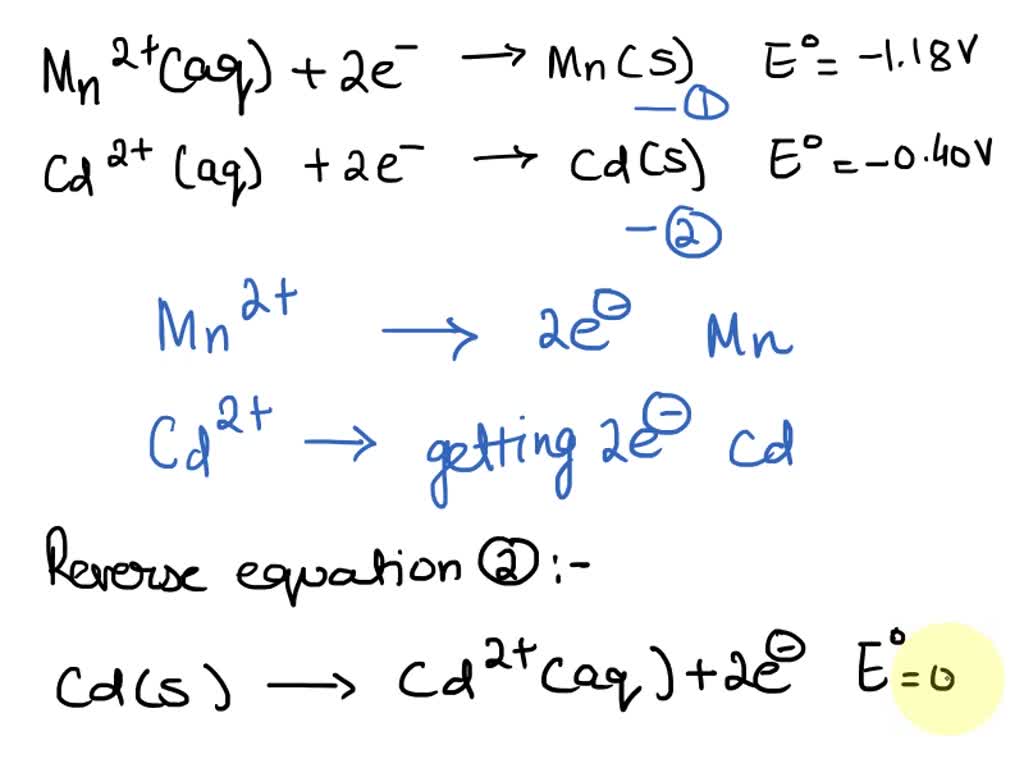 Mn²⁺(aq) + 2e⁻ → Mn(s) E° = -1.18V
— ①
Cd²⁺ (aq) + 2e⁻ → Cd(s) E° = -0.40V
— ②
Mn²⁺ → 2e⊖ Mn
Cd²⁺ → getting 2e⊖ Cd
Reverse equation ② :-
Cd(s) → Cd²⁺(aq) + 2e⊖ E° = 0